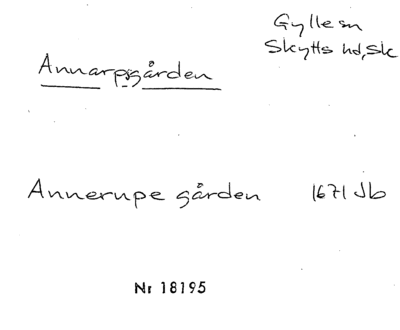 Gylle sn
Skytts hd, Sk
Annarpsgården
Annerupe gården 1671 Jb
Nr 18195